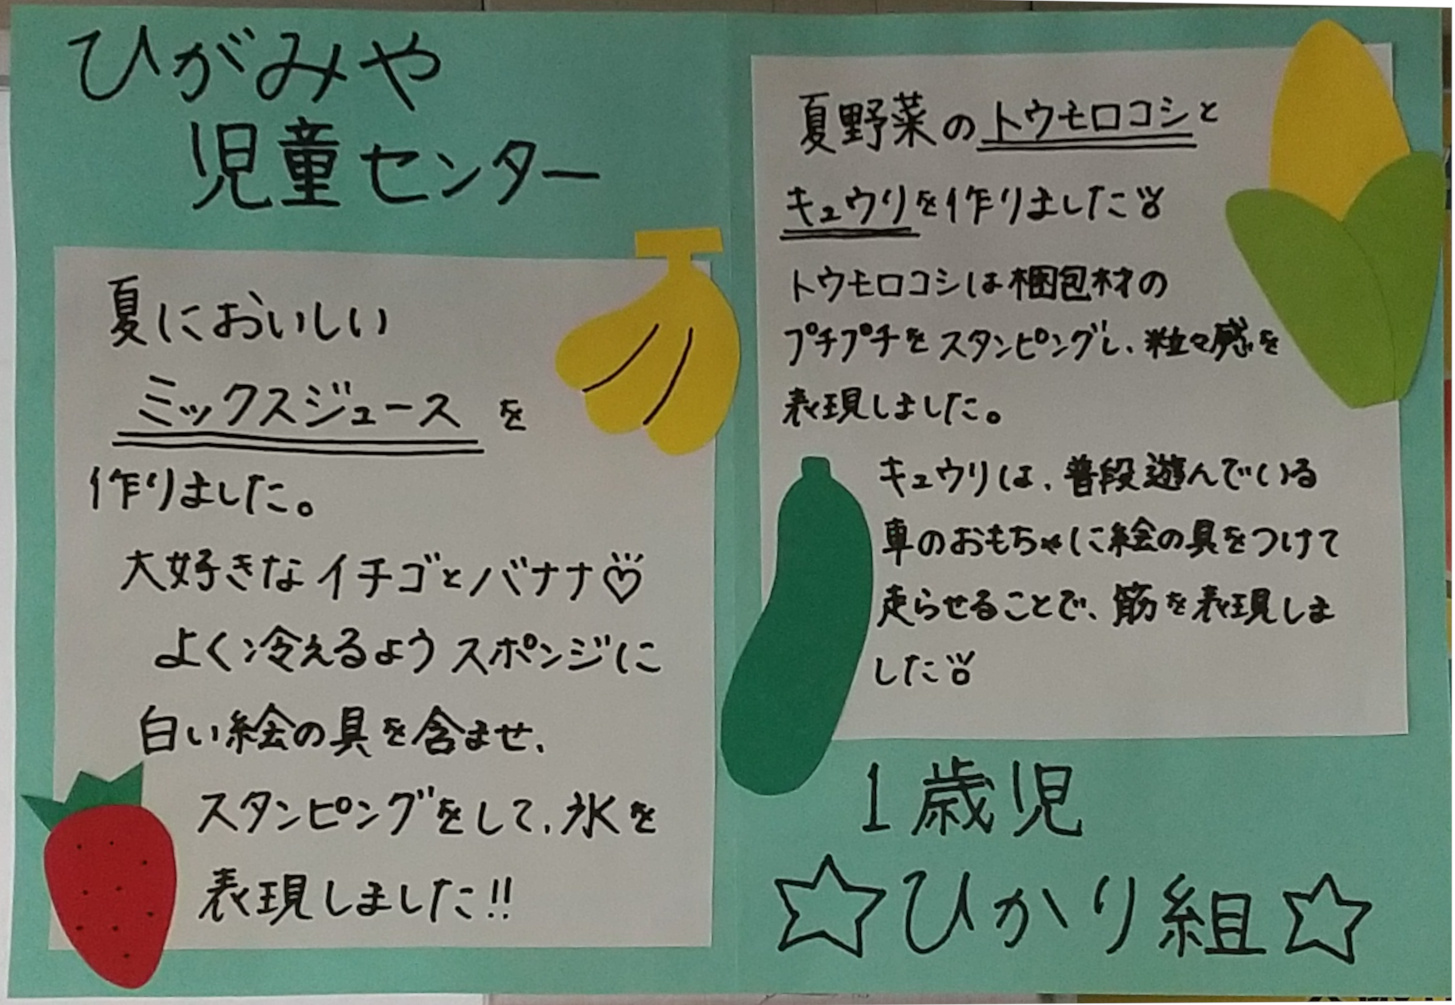 ひがみや
児童センター
夏においしい
ミックスジュース を
作りました。
大好きなイチゴとバナナ♡
よく冷えるよう スポンジに
白い絵の具を含ませ、
スタンピングをして、氷を
表現しました!!
夏野菜のトウモロコシと
キュウリを作りました
トウモロコシは梱包材の
プチプチをスタンピングし、粒々感を
表現しました。
キュウリは、普段遊んでいる
車のおもちゃに絵の具をつけて
走らせることで、筋を表現しま
した
1歳児
☆ひかり組☆